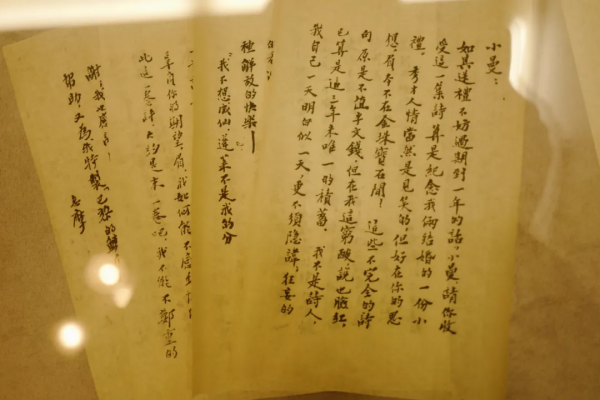 小曼：
如其送禮不妨過期到一年的話，小曼，請你收
受這一集詩，算是紀念我倆結婚的一份小
禮。秀才人情當然是見笑的，但好在你的思
想，眉，本不在金珠寶石間！這些不完全的詩
句，原是不值半文錢，但在我這窮酸，說也臉紅，
已算是這三年來唯一的積蓄。我不是詩人，
我自己一天明白似一天，更不須隱諱，狂妄的
種解放的快樂——
“我不想成仙，蓬萊不是我的分，
你的期望，眉，我如何能不
此這一卷詩，大約是末一卷吧，我不能不鄭重的
謝
帮助，又為我特製“巴黎的鱗
志摩